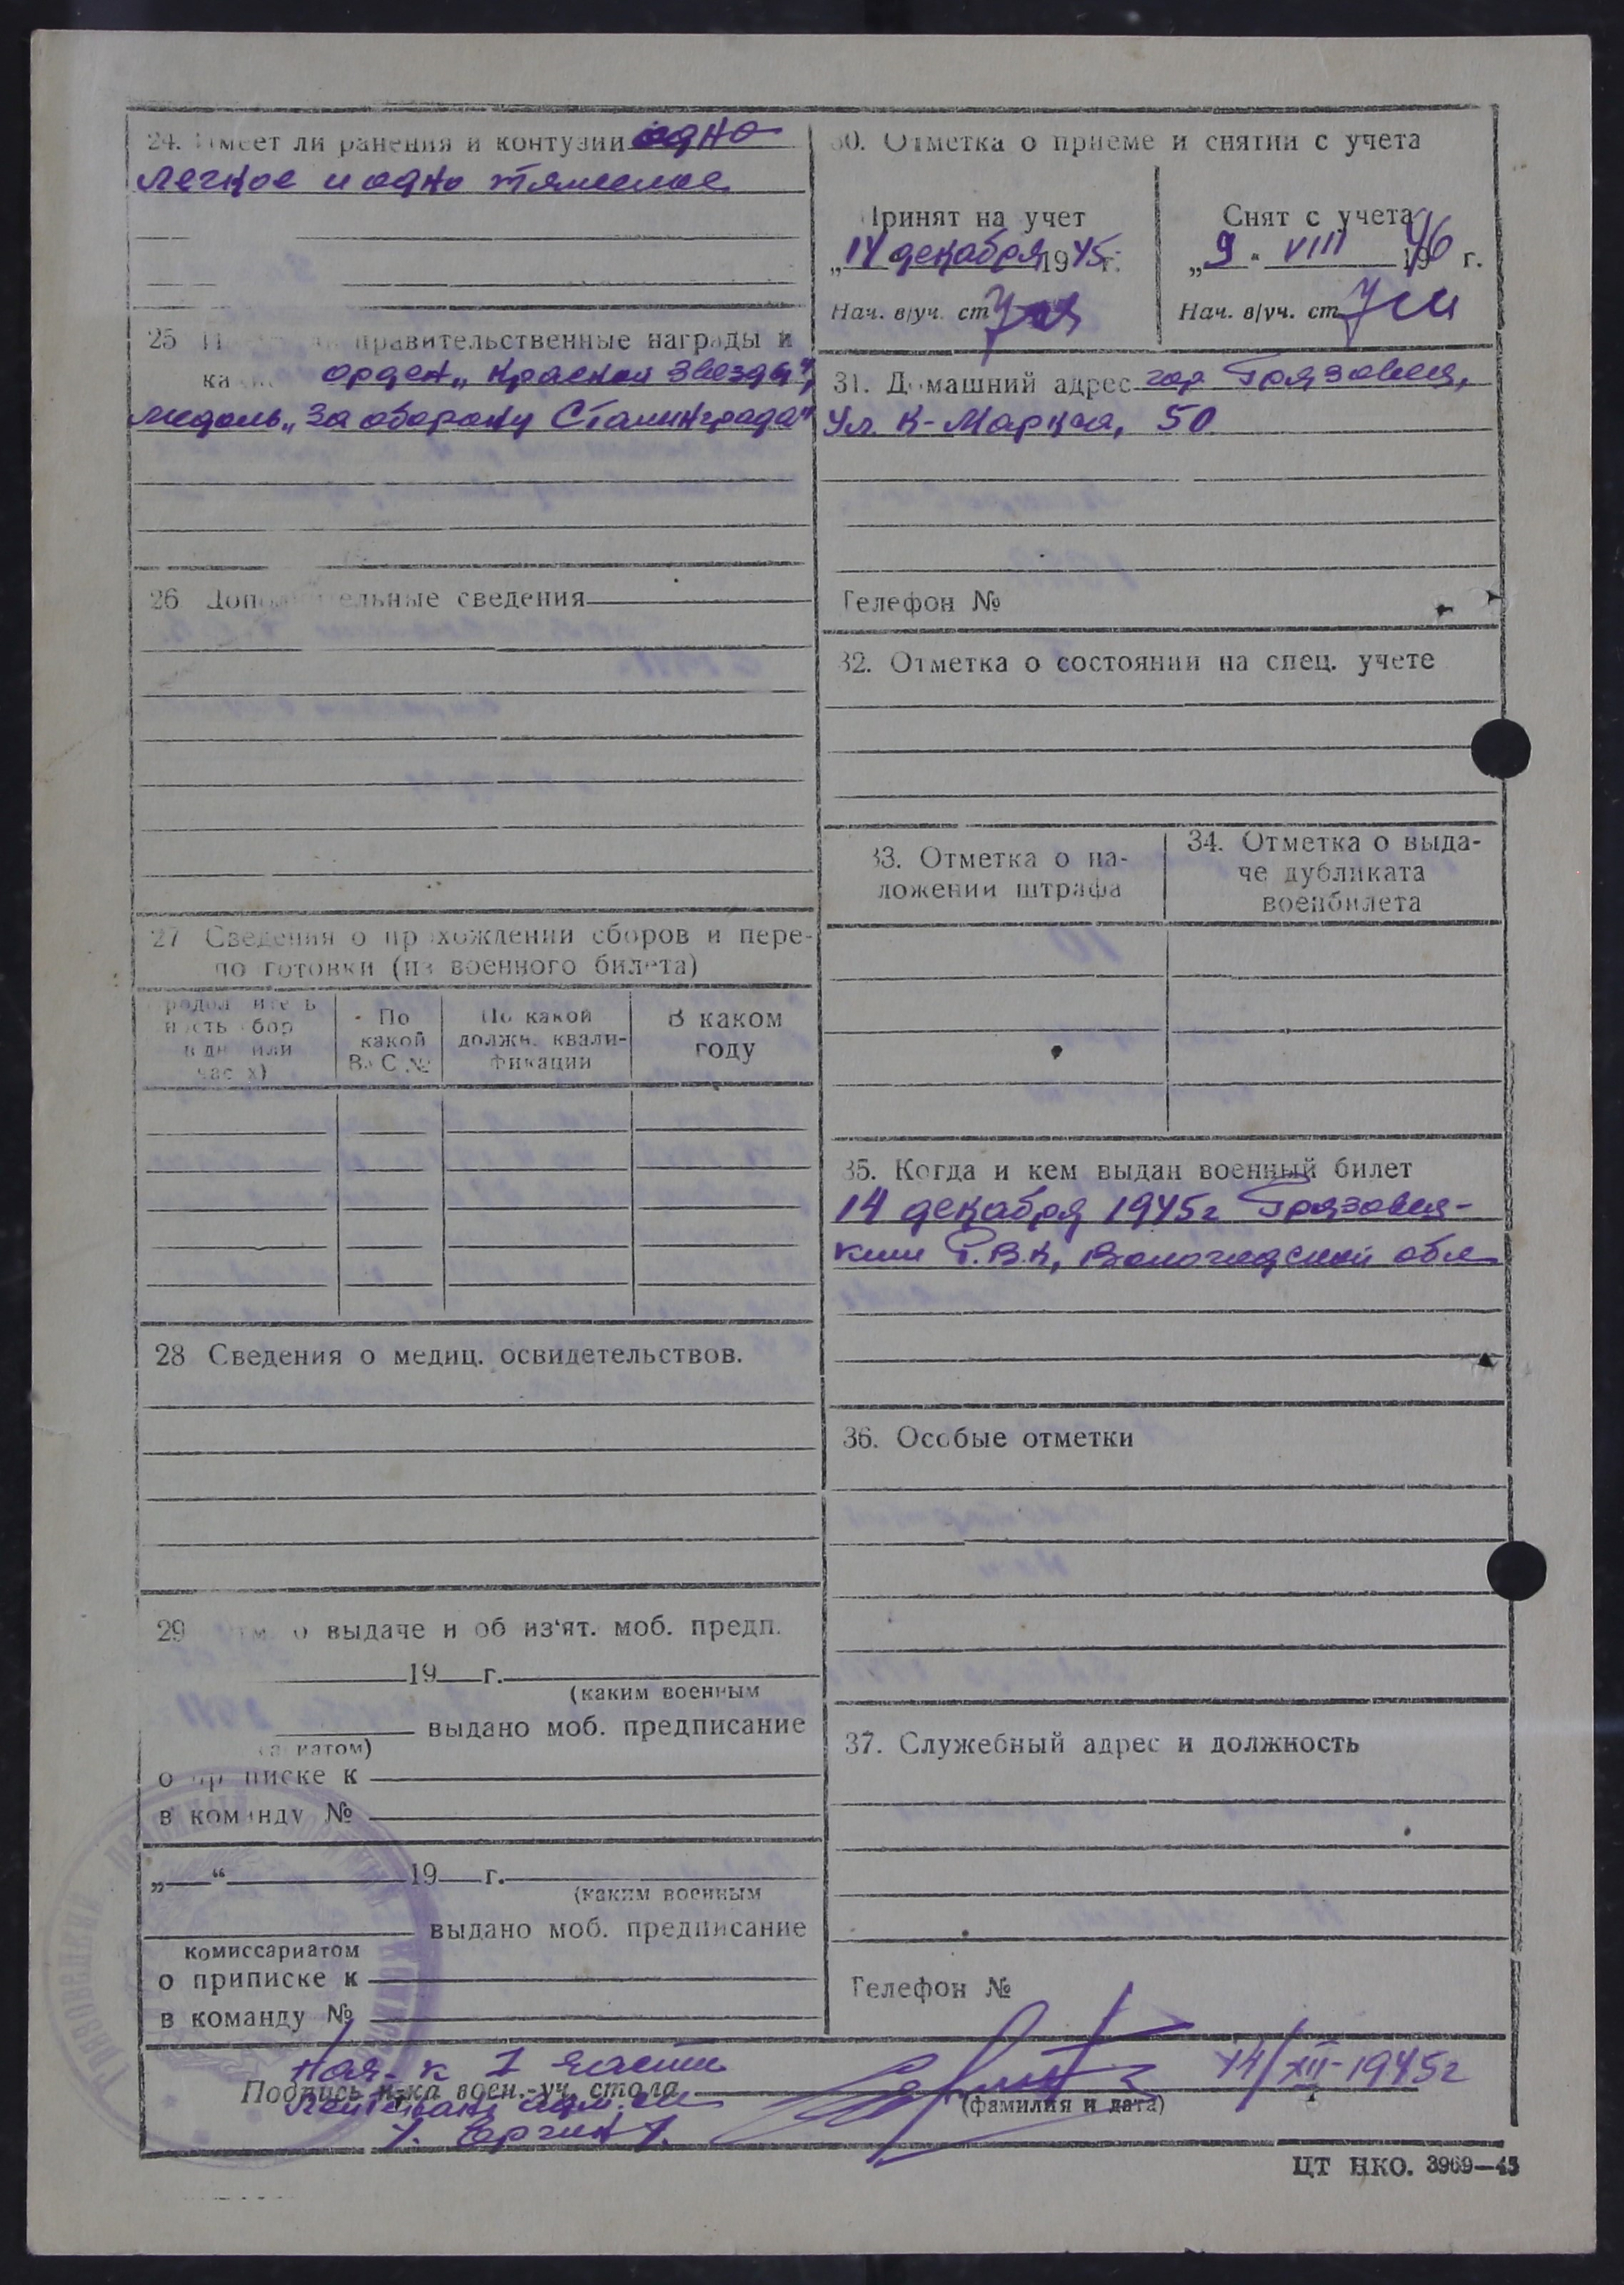 24. Имеет ли ранения и контузии одно
легкое и одно тяжелое
25 правительственные награды и
ка орден „Красной Звезды“,
медаль „За оборону Сталинграда“
26 Дополнительные сведения
27 Сведения о прохождении сборов и пере-
подготовки (из военного билета)
Продолжитель
ность сбор
в дн или
часах)
По
какой
ВУС №
По какой
должн. квали-
фикации
В каком
году
28 Сведения о медиц. освидетельствов.
29 о выдаче и об из‘ят. моб. предп.
19 г.
(каким военным
выдано моб. предписание
комиссариатом)
о приписке к
в команду №
„ “ 19 г.
(каким военным
выдано моб. предписание
комиссариатом
о приписке к
в команду №
30. Отметка о приеме и снятии с учета
Принят на учет
„14 декабря 1945 г.
Нач. в/уч. ст
Снят с учета
„9“ VIII 1946 г.
Нач. в/уч. ст
31. Домашний адрес гор Грязовец,
Ул. К-Маркса, 50
Телефон №
32. Отметка о состоянии на спец. учете
33. Отметка о на-
ложении штрафа
34. Отметка о выда-
че дубликата
военбилета
35. Когда и кем выдан военный билет
14 декабря 1945г Грязовец-
ким Р.В.К, Вологодской обл
36. Особые отметки
37. Служебный адрес и должность
Телефон №
Нач-к I части
Подпись н-ка воен.-уч. стола
лейтенант адм. сл
(фамилия и дата)
14/XII-1945г
ЦТ НКО. 3969—45